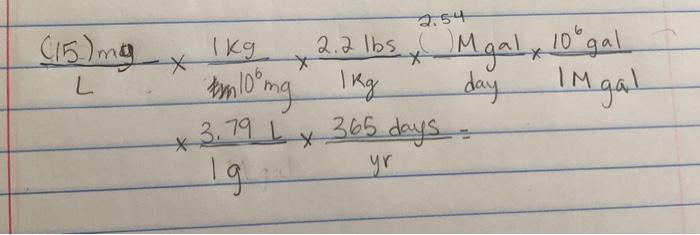 (15) mg/L × 1 Kg/10⁶ mg × 2.2 lbs/1 Kg × (2.54) M gal/day × 10⁶ gal/1 M gal
× 3.79 L/1 g × 365 days/yr =